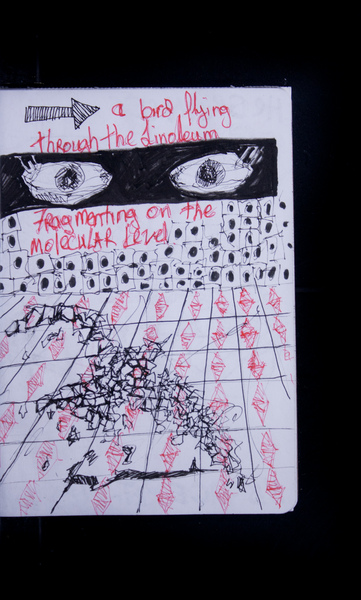 a bird flying
through the Linoleum
Fragmenting on the
MOLECULAR Level